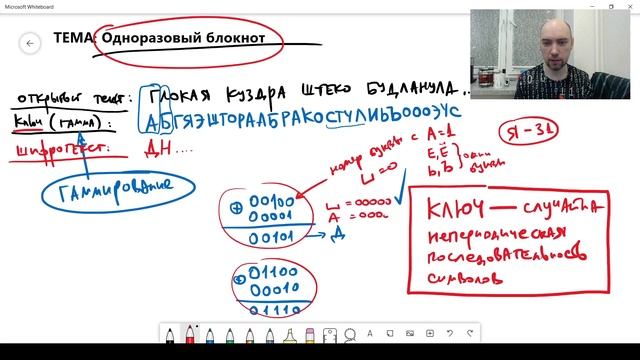 Microsoft Whiteboard
ТЕМА: Одноразовый блокнот
ОТКРЫТЫЙ ТЕКСТ: ГЛОКАЯ КУЗДРА ШТЕКО БУДЛАНУЛА...
КЛЮЧ (ГАММА): АБГЯЭШТОРААБРАКОСТУЛИЬЪОООЭУС
ШИФРОТЕКСТ: ДН....
ГАММИРОВАНИЕ
⊕ 00100
00001
00101 → Д
⊕ 01100
00010
01110
номер буквы с А=1
⊔=0
Е, Ё
Ь, Ъ
одни буквы
Я-31
⊔ = 00000
А = 000
КЛЮЧ — СЛУЧАЙНА
НЕПЕРИОДИЧЕСКАЯ
ПОСЛЕДОВАТЕЛЬНОСТЬ
СИМВОЛОВ